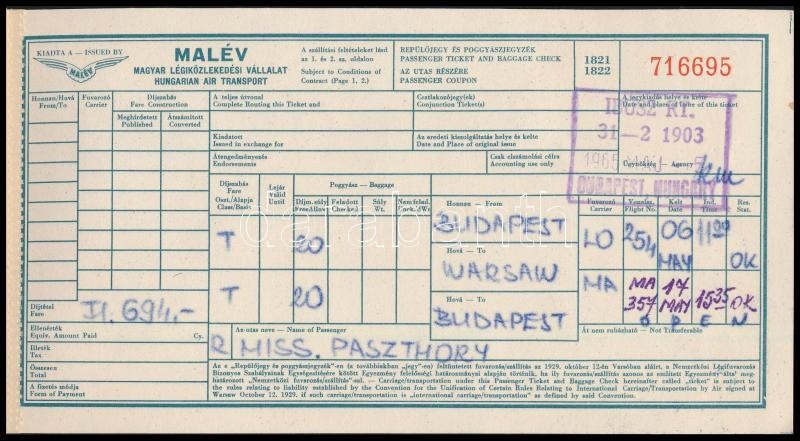 KIADTA A — ISSUED BY
MALÉV
MALÉV
MAGYAR LÉGIKÖZLEKEDÉSI VÁLLALAT
HUNGARIAN AIR TRANSPORT
A szállítási feltételeket lásd
az 1. és 2. sz. oldalon
Subject to Conditions of
Contract (Page 1, 2.)
REPÜLŐJEGY ÉS POGGYÁSZJEGYZÉK
PASSENGER TICKET AND BAGGAGE CHECK
AZ UTAS RÉSZÉRE
PASSENGER COUPON
1821
1822
716695
Honnan/Hová
From/To
Fuvarozó
Carrier
Díjszabás
Fare Construction
Meghirdetett
Published
Átszámított
Converted
A teljes útvonal
Complete Routing this Ticket and
Csatlakozójegy(ek)
Conjunction Ticket(s)
A jegykiadás helye és kelte
Date and place of issue of this ticket
IBUSZ RT.
31 —2 1903
BUDAPEST, HUNGARY
Kiadatott
Issued in exchange for
Az eredeti kicsolgáltatás helye és kelte
Date and Place of original issue
Átengedményezés
Endorsements
Csak elszámolási célra
Accounting use only
Ügynökség Agency
Díjszabás
Fare
Oszt./Alapja
Class/Basis
Lejár
Valid
Until
Poggyász — Baggage
Díjm. súly
Free Allow.
Feladott
Checked
Súly
Wt.
Nem felad.
Unck. Wt.
Honnan — From
BUDAPEST
Fuvarozó
Carrier
Vonalsz.
Flight No.
Kelt
Date
Ind.
Time
Res.
Stat.
T 20 LO 254 06 MAY 11 00 OK
Hová — To
WARSAW
T 20 MA MA 357 17 MAY 15 35 OK
Hová — To
BUDAPEST
O P E N
Díjtétel
Fare
Ft. 694.-
Ellenérték
Equiv. Amount Paid Cy.
Az utas neve — Name of Passenger
Át nem ruházható — Not Transferable
R MISS. PASZTHORY
Illeték
Tax
Összesen
Total
A fizetés módja
Form of Payment
Az e „Repülőjegy és poggyászjegyzék"-en (a továbbiakban „jegy"-en) feltüntetett fuvarozás/szállítás az 1929. évi október 12-én Varsóban aláírt, a Nemzetközi Légifuvarozás
Bizonyos Szabályainak Egységesítésére kötött Egyezmény felelősségi határozmányai alapján történik, ha ily fuvarozás/szállítás azonos az említett Egyezmény által meg-
határozott „Nemzetközi fuvarozás/szállítás"-sal. — Carriage/transportation under this Passenger Ticket and Baggage Check hereinafter called „ticket" is subject to
the rules relating to liability established by the Convention for the Unification of Certain Rules Relating to International Carriage/Transportation by Air signed at
Warsaw October 12. 1929. if such carriage/transportation is „international carriage/transportation" as defined by said Convention.
darabanth